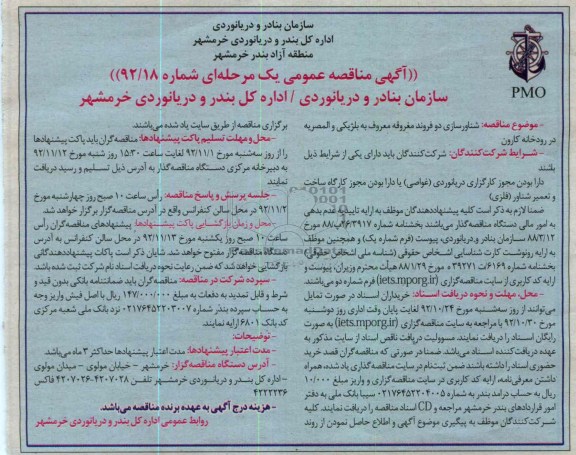 سازمان بنادر و دریانوردی
اداره کل بندر و دریانوردی خرمشهر
منطقه آزاد بندر خرمشهر
((آگهی مناقصه عمومی یک مرحله‌ای شماره ۹۲/۱۸))
سازمان بنادر و دریانوردی / اداره کل بندر و دریانوردی خرمشهر
PMO
- موضوع مناقصه: شناورسازی دو فروند مغروقه معروف به بلژیکی و المصریه
در رودخانه کارون
- شرایط شرکت‌کنندگان: شرکت‌کنندگان باید دارای یکی از شرایط ذیل
باشند
دارا بودن مجوز کارگزاری دریانوردی (غواصی) یا دارا بودن مجوز کارگاه ساخت
و تعمیر شناور (فلزی)
ضمنا لازم به ذکر است کلیه پیشنهاددهندگان موظف به ارایه تاییدیه عدم بدهی
به امور مالی دستگاه مناقصه‌گذار می‌باشند بخشنامه شماره ۴۶۳۹۱۷/م/۸۸ مورخ
۸۸/۳/۱۲ سازمان بنادر و دریانوردی، پیوست (فرم شماره یک) و همچنین موظف
به ارایه رونوشت کارت شناسایی اشخاص حقوقی (شناسه ملی اشخاص حقوقی)
بخشنامه شماره ۱۶۱۶۹/ت ۳۹۲۷۱ ه مورخ ۸۸/۱/۲۹ هیأت محترم وزیران، پیوست و
ارایه کد کاربری از سایت مناقصه‌گزاری (iets.mporg.ir) فرم شماره دو می‌باشند.
- محل، مهلت و نحوه دریافت اسناد: خریداران اسناد در صورت تمایل
می‌توانند از روز سه‌شنبه مورخ ۹۲/۱۰/۲۴ لغایت پایان وقت اداری روز دوشنبه
مورخ ۹۲/۱۰/۳۰ با مراجعه به سایت مناقصه‌گزاری (iets.mporg.ir) به صورت
رایگان اسناد را دریافت نمایند. مسوولیت دریافت ناقص اسناد از سایت مذکور به
عهده دریافت‌کننده اسناد می‌باشد. ضمنا در صورتی که مناقصه‌گران قصد خرید
حضوری اسناد را داشته باشند ضمن ثبت‌نام در سایت مناقصه‌گذاری یاد شده، همراه
داشتن معرفی‌نامه، ارایه کد کاربری در سایت مناقصه‌گزاری و واریز مبلغ ۱۰/۰۰۰
ریال به حساب درآمد بندر به شماره ۲۱۷۶۴۵۲۲۰۴۰۰۵ سیبا بانک ملی به دفتر
امور قراردادهای بندر خرمشهر مراجعه و CD اسناد مناقصه را دریافت نمایند. کلیه
شرکت‌کنندگان موظف به پیگیری موضوع آگهی و اطلاع حاصل نمودن از روند
برگزاری مناقصه از طریق سایت یاد شده می‌باشند.
- محل و مهلت تسلیم پاکت پیشنهادها: مناقصه‌گران باید پاکت پیشنهادها
را از روز سه‌شنبه مورخ ۹۲/۱۱/۱ لغایت ساعت ۱۵:۳۰ روز شنبه مورخ ۹۲/۱۱/۱۲
به دبیرخانه مرکزی دستگاه مناقصه‌گذار به آدرس ذیل تسلیم و رسید دریافت
نمایند
- جلسه پرسش و پاسخ مناقصه: رأس ساعت ۱۰ صبح روز چهارشنبه مورخ
۹۲/۱۱/۲ در محل سالن کنفرانس واقع در آدرس مناقصه‌گزار برگزار خواهد شد.
- محل و زمان بازگشایی پاکت پیشنهادها: پیشنهادهای مناقصه‌گران رأس
ساعت ۱۰ صبح روز یکشنبه مورخ ۹۲/۱۱/۱۳ در محل سالن کنفرانس به آدرس
دستگاه مناقصه‌گزار مفتوح خواهد شد. شایان ذکر است پاکات پیشنهاددهندگانی
بازگشایی خواهد شد که ضمن رعایت نحوه دریافت اسناد نام شرکت ثبت شده باشد.
- سپرده شرکت در مناقصه: مناقصه‌گران باید ضمانتنامه بانکی بدون قید و
شرط و قابل تمدید به دفعات به مبلغ ۱۴۷/۰۰۰/۰۰۰ ریال یا اصل فیش واریز وجه
به حساب سپرده بندر شماره ۲۱۷۶۴۵۲۲۰۳۰۰۷ نزد بانک ملی شعبه مرکزی
کد بانک ۶۸۰۱ ارایه نمایند.
- توضیحات:
- مدت اعتبار پیشنهادها: مدت اعتبار پیشنهادها حداکثر ۳ ماه می‌باشد
- آدرس دستگاه مناقصه‌گزار: خرمشهر - خیابان مولوی - میدان مولوی
- اداره کل بندر و دریانوردی خرمشهر تلفن ۴۲۰۷۰۳۸-۴۲۰۷۰۲۶ فاکس
۴۲۲۲۲۳۶
- هزینه درج آگهی به عهده برنده مناقصه می‌باشد.
روابط عمومی اداره کل بندر و دریانوردی خرمشهر